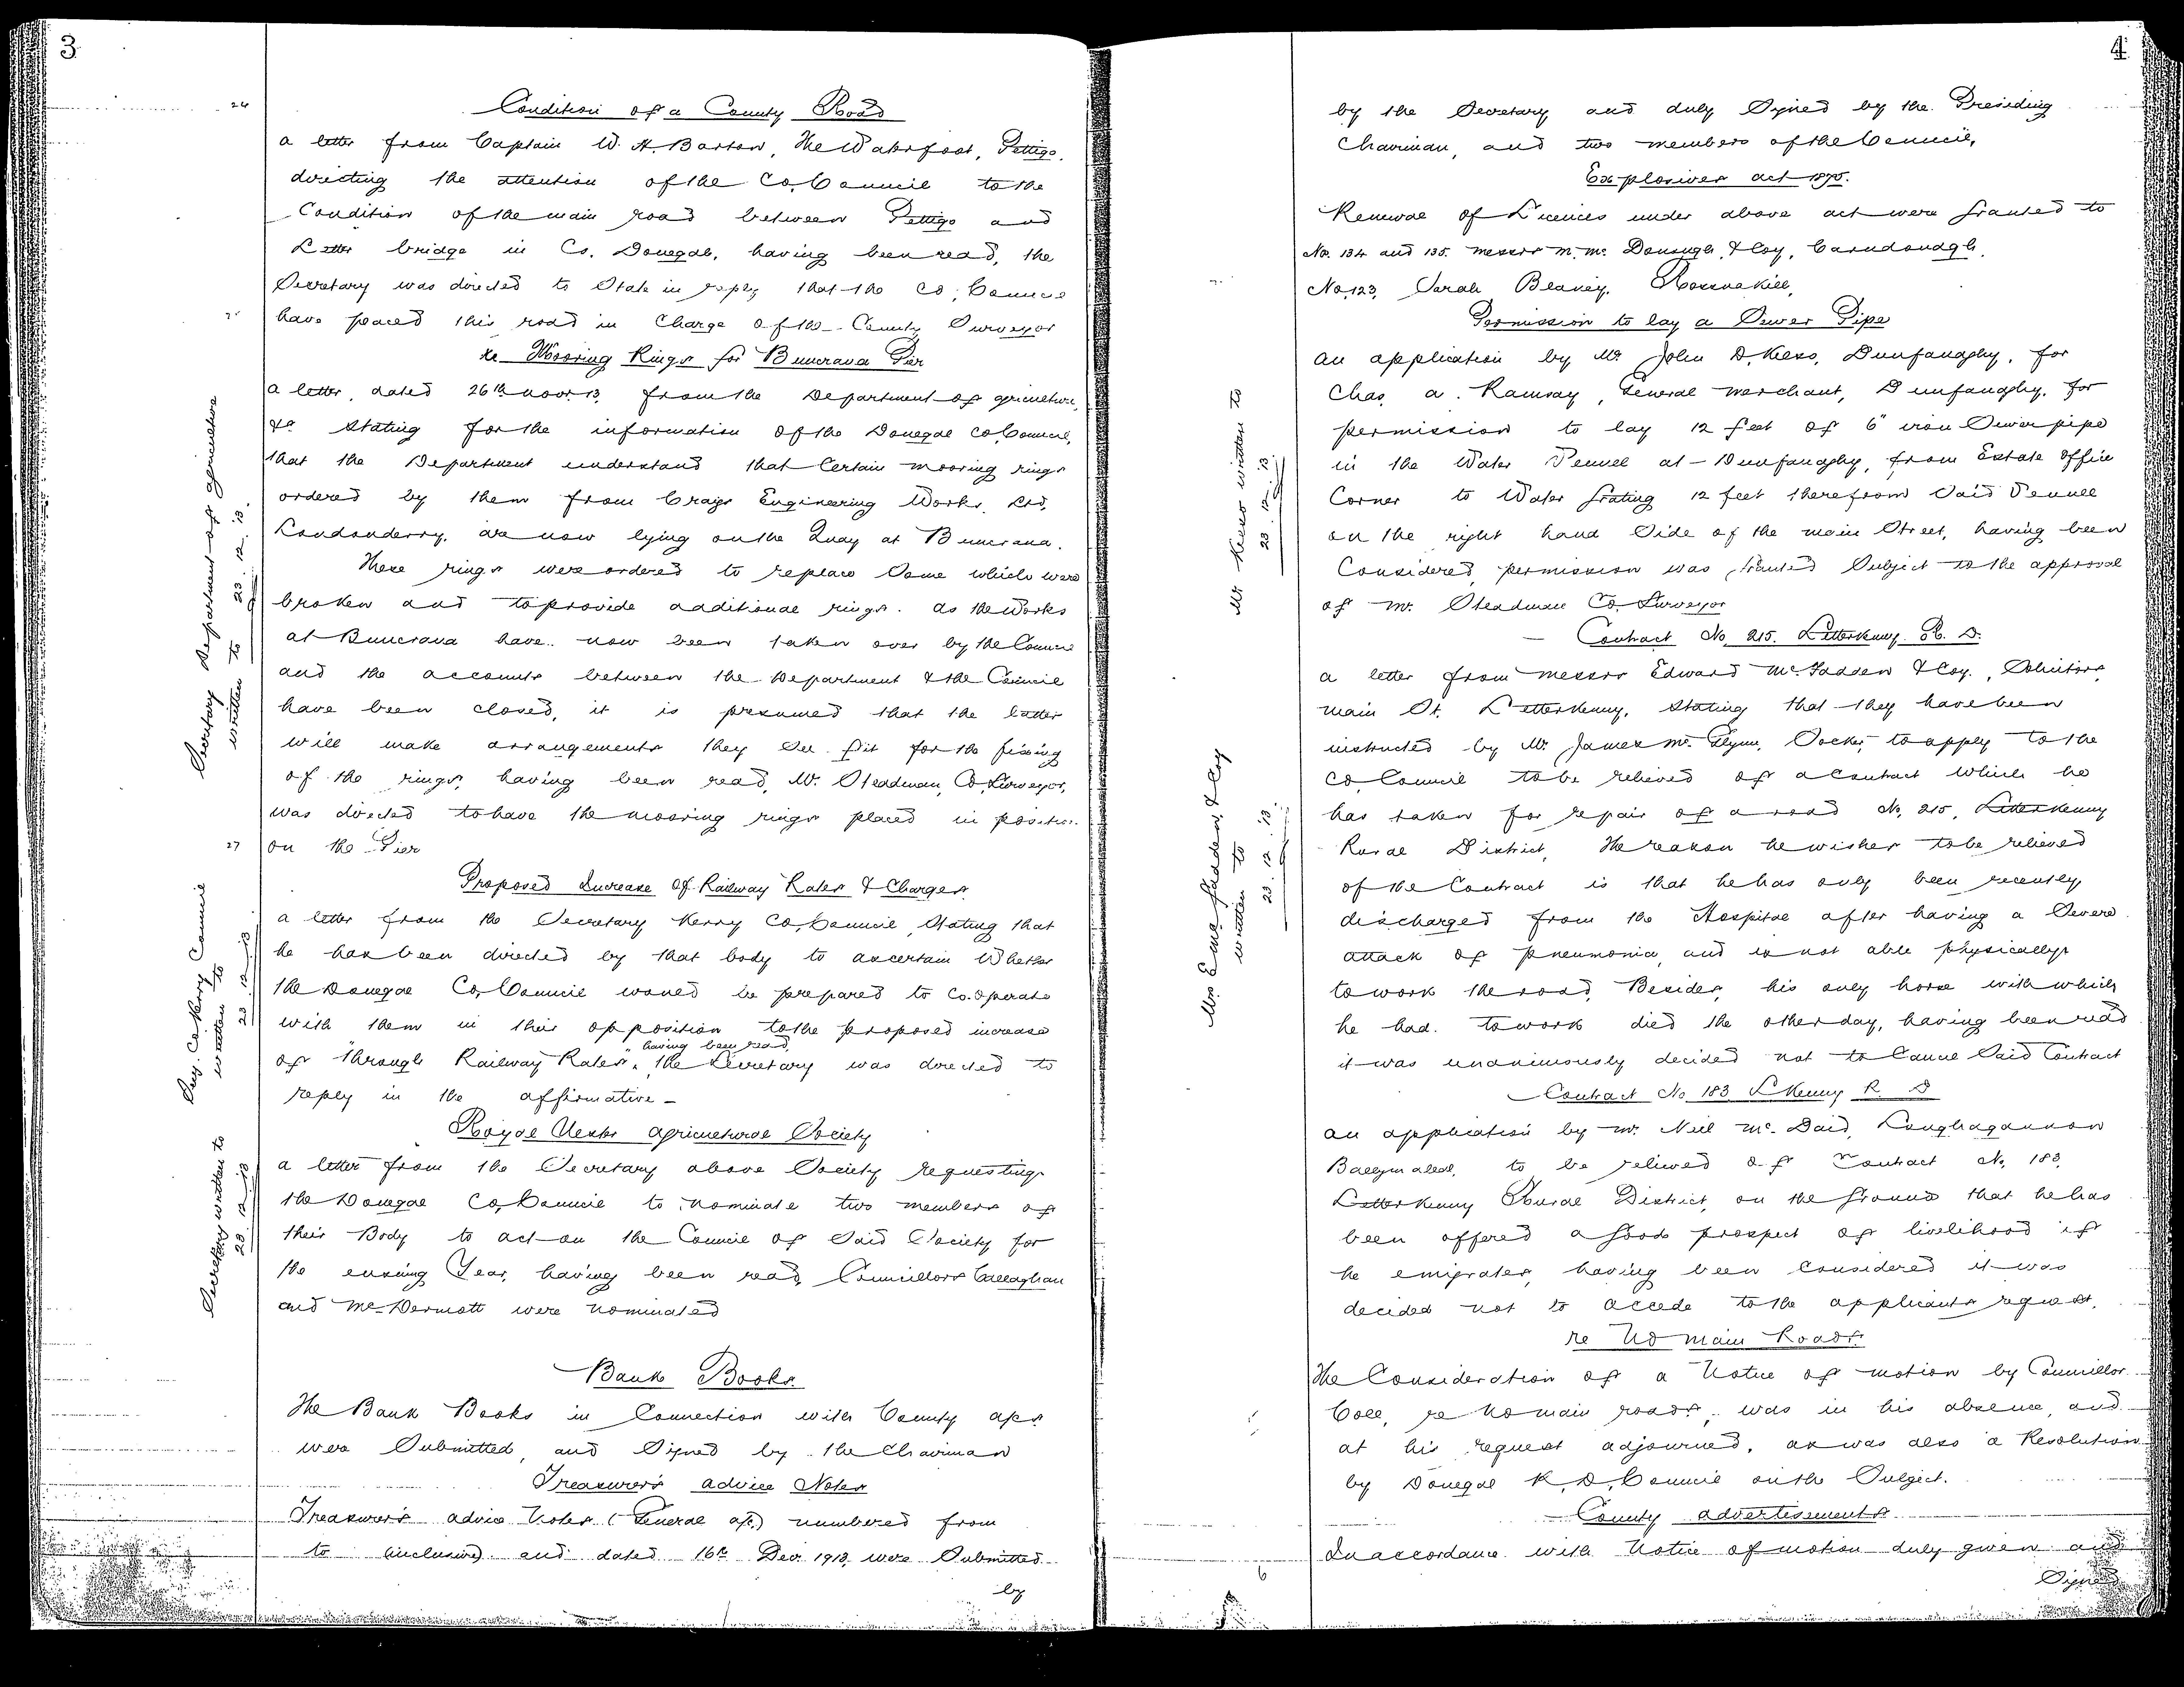 3
24
Condition of a County Road
a letter from Captain W. H. Barton, The Waterfoot, Pettigo,
directing the attention of the Co. Council to the
Condition of the main road between Pettigo and
Letter bridge in Co. Donegal, having been read, the
Secretary was directed to State in reply that the Co. Council
have placed this road in Charge of the County Surveyor
re Mooring Rings for Buncrana Pier
a letter, dated 26th Novr. 13, from the Department of griculture,
&c Stating for the information of the Donegal Co. Council,
that the Department understand that Certain mooring rings
ordered by them from Craigs Engineering Works, Ltd,
Londonderry, are now lying on the Quay at Buncrana.
These rings were ordered to replace Some which were
broken and to provide additional rings. As the Works
at Buncrana have now been taken over by the Council
and the accounts between the Department & the Council
have been closed, it is presumed that the latter
will make arrangements they See fit for the fixing
of the rings, having been read, Mr. Steadman, Co. Surveyor,
was directed to have the mooring rings placed in position
on the Pier
Secretary Department of griculture
written to 23.12.13.
27
Proposed Increase of Railway Rates & Charges.
a letter from the Secretary Kerry Co. Council, Stating that
he has been directed by that body to ascertain Whether
the Donegal Co. Council would be prepared to Co.operate
with them in their opposition to the proposed increase
of "through Railway Rates", having been read, the Secretary was directed to
reply in the affirmative -
Secy. Co. Kerry Council
written to
23.12.13
Royal Ulster agricultural Society
a letter from the Secretary above Society requesting
the Donegal Co. Council to nominate two members of
their Body to act on the Council of Said Society for
the ensuing Year, having been read, Councillors Callaghan
and McDermott were nominated
Secretary written to
23.12.13
Bank Books
The Bank Books in Connection with County a/cs
were Submitted, and Signed by the Chairman
Treasurer's advice Notes
Treasurer's advice Notes (General a/c) numbered from
to (inclusive) and dated 16th Decr. 1913 were Submitted
by
4
by the Secretary and duly Signed by the Presiding
Chairman, and two members of the Council,
Explosives act 1875.
Renewal of Licences under above act were Granted to
No. 134 and 135. Messrs M. Mc. Donough & Coy, Carndonagh,
No. 123, Sarah Blaney, Rossnakill,
Permission to lay a Sewer Pipe
an application by Mr John D. Kelso, Dunfanaghy, for
Chas. a. Ramsay, General Merchant, Dunfanaghy, for
permission to lay 12 feet of 6" iron Sewer pipe
in the Water Vennel at Dunfanaghy, from Estate Office
Corner to Water Grating 12 feet therefrom Said Vennel
on the right hand Side of the main Street, having been
Considered, permission was Granted Subject to the approval
of Mr. Steadman Co. Surveyor
Mr Kelso written to
23.12.13.
Contract No. 215. Letterkenny R. D.
a letter from Messrs Edward McFadden & Coy., Solicitors,
Main St. Letterkenny, Stating that they have been
instructed by Mr. James Mc. Glynn, Socker, to apply to the
Co. Council to be relieved of a Contract which he
has taken for repair of a road No. 215, Letterkenny
Rural District, The reason he wishes to be relieved
of the Contract is that he has only been recently
discharged from the Hospital after having a Severe
attack of pneumonia, and is not able physically
to work the road, Besides, his only horse with which
he had to work died the other day, having been read
it was unanimously decided not to Cancel Said Contract
Mrs E McFadden, & Coy
written to
23.12.13.
Contract No. 183 L'Kenny R. D
an application by Mr. Neil Mc. Daid,
to be relieved of Contract No. 183,
Letterkenny Rural District, on the Ground that he has
been offered a Good prospect of livelihood if
he emigrates, having been Considered it was
decided not to accede to the applicants request.
re No main Roads.
The Consideration of a Notice of motion by Councillor
Coll, re No main roads, was in his absence, and
at his request adjourned, as was also a Resolution
by Donegal R. D. Council on the Subject.
County advertisements
In accordance with Notice of motion duly given and
Signed